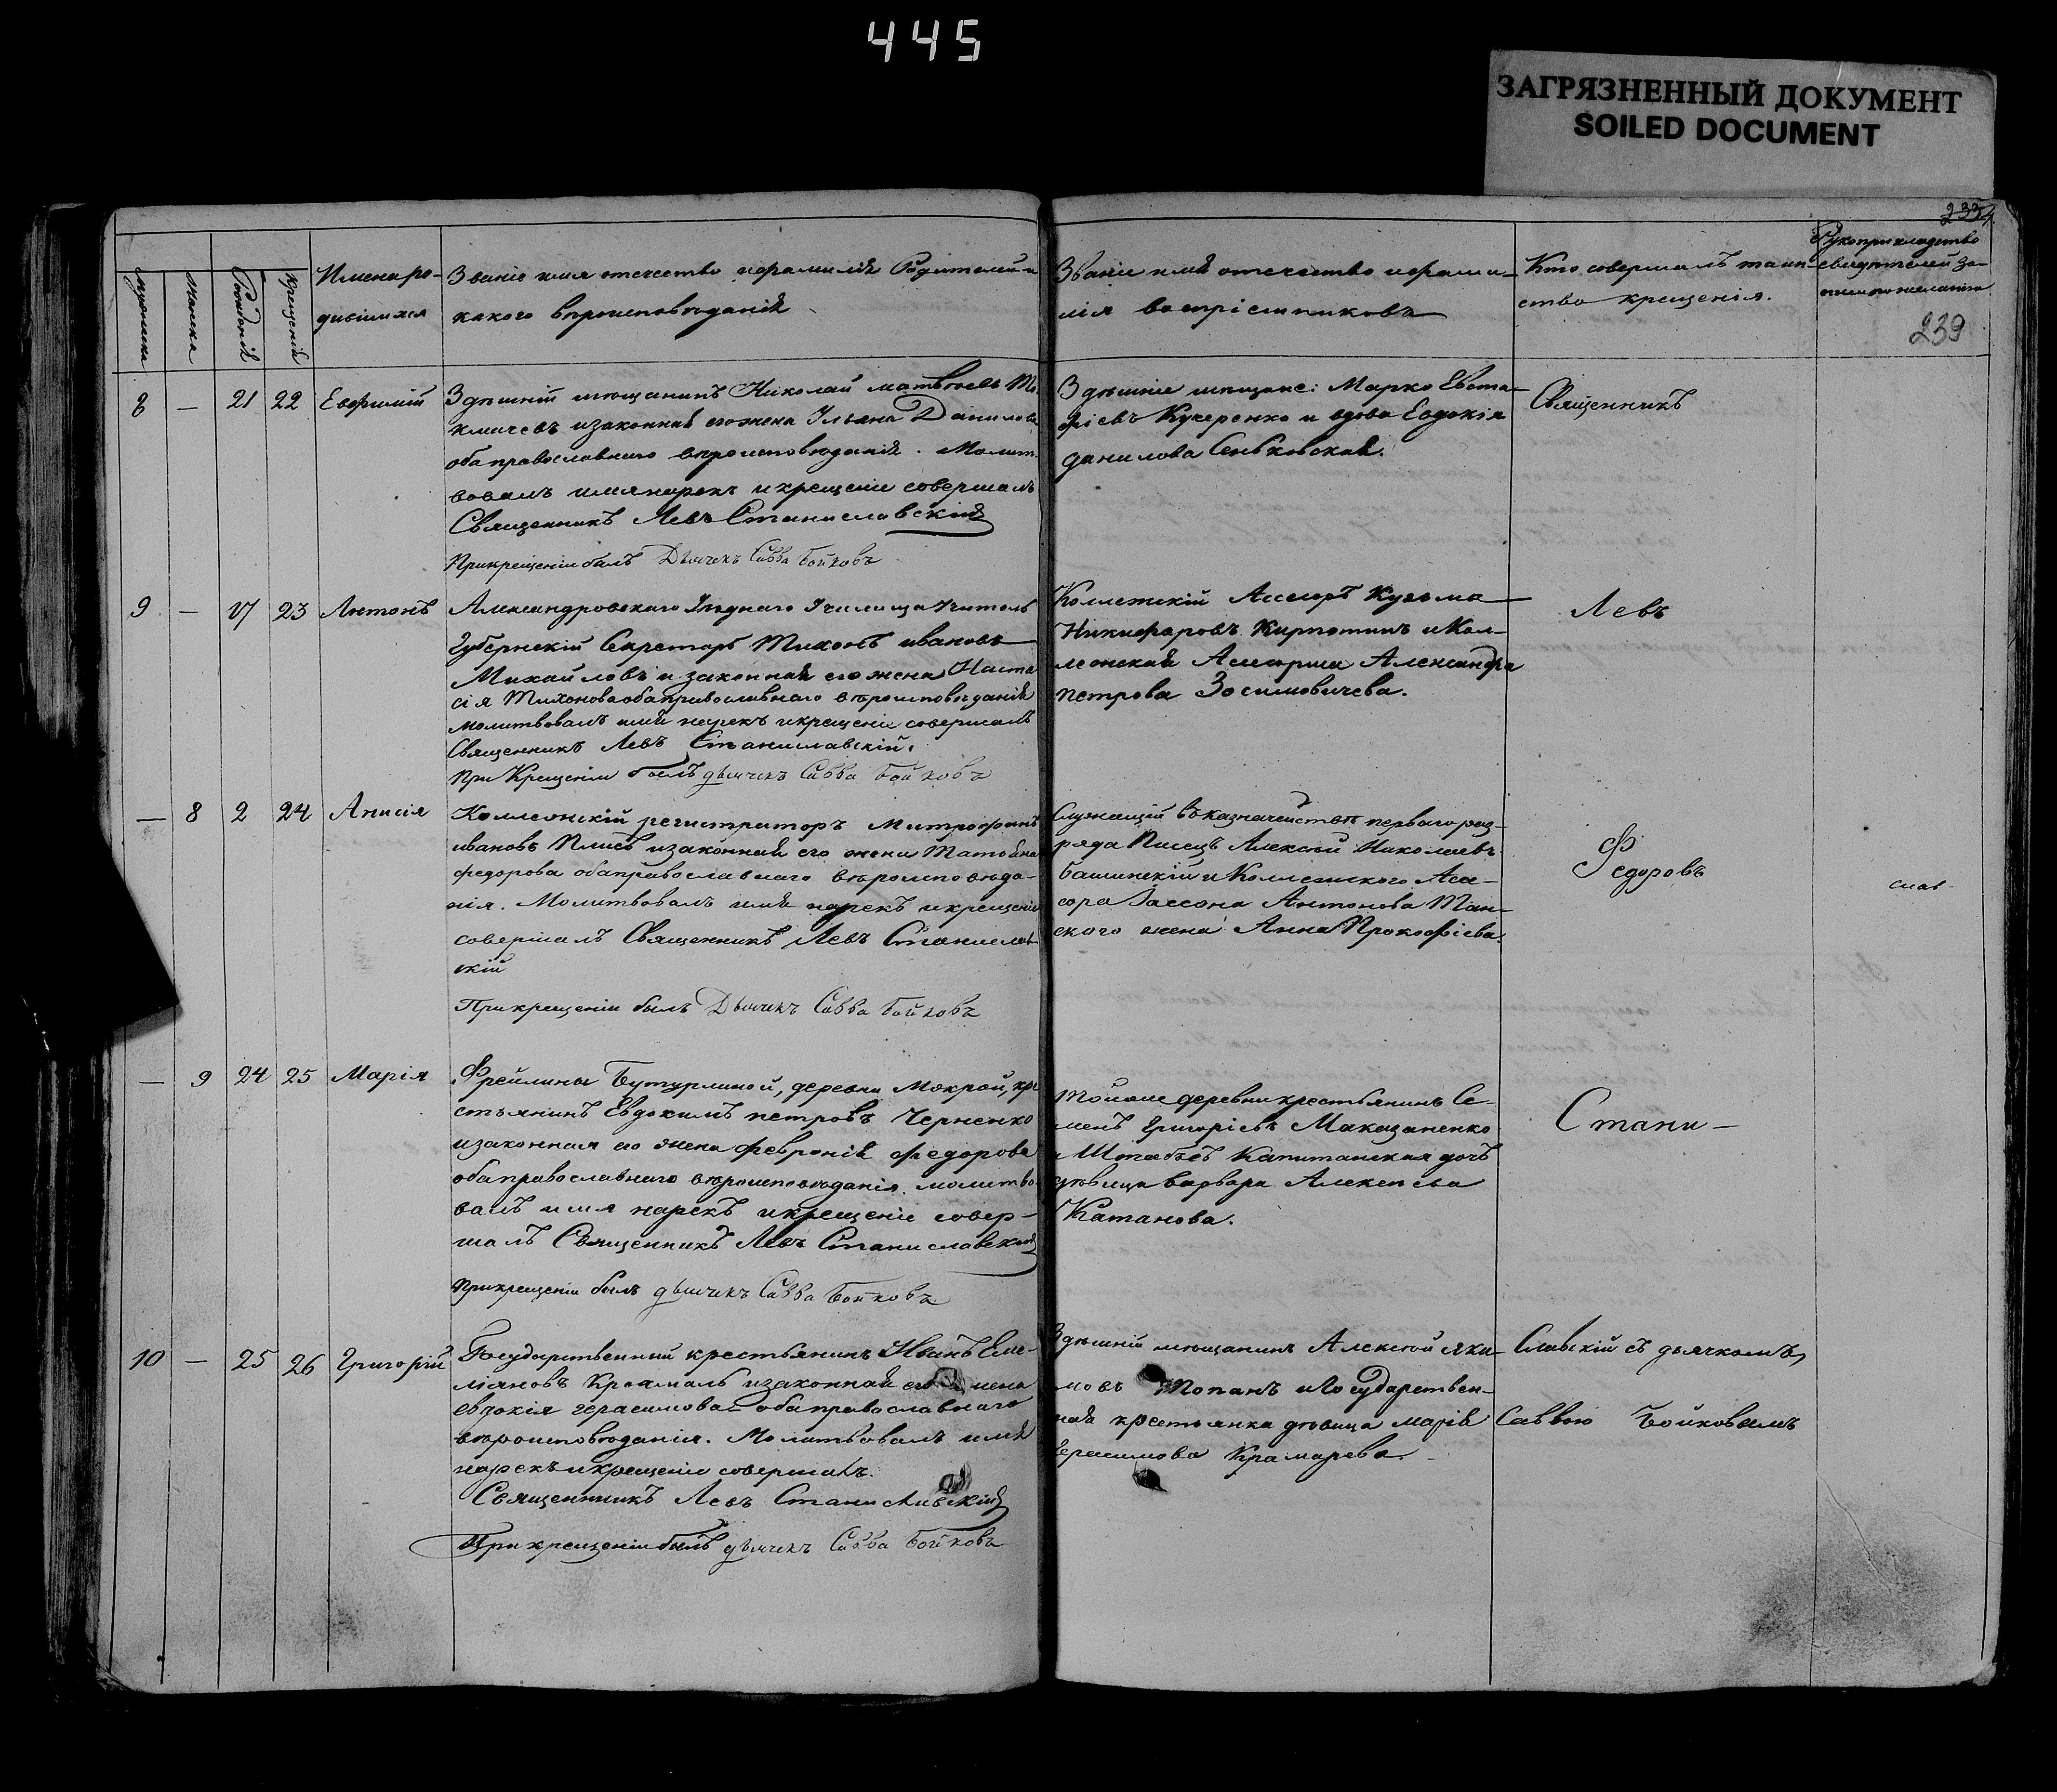 445
ЗАГРЯЗНЕННЫЙ ДОКУМЕНТ
SOILED DOCUMENT
239
мужеска
женска
Рожденія
Крещенія
Имена ро-
дившихся
Званіе имя отечество ифамилія Родителей и
какого вероисповѣданія
Званіе имя отечество ифами-
лія воспріемниковъ
Кто совершалъ таин-
ство крещенія.
Рукоприкладство
свидѣтелей за-
писи по желанію
8 — 21 22 Евфимій
Здѣшній мѣщанинъ Николай матвѣевъ
изаконная его жена Ульяна Данилова
оба православнаго вѣроисповѣданія. Молит-
вовалъ имя нарекъ и крещеніе совершалъ
Священникъ Левъ Станиславскій
При крещеніи былъ Дьячекъ Савва Бойковъ
Здѣшніе мещане: Марко Евста-
фіевъ Кучеренко и вдова Евдокія
данилова Сеньковская.
Священникъ
9 — 17 23 Антонъ
Александровскаго Уѣзднаго Училища Учитель
Губернскій Секретарь Тихонъ ивановъ
Михайловъ и законная его жена Наста
сія Тихонова оба православнаго вѣроисповѣданія
молитвовалъ имя нарекъ и крещеніе совершалъ
Священникъ Левъ Станиславскій.
При Крещеніи былъ дьячекъ Савва Бойковъ
Колежскій Ассесоръ Кузьма
Никифоровъ Кирпотинъ и Кол-
лежская Ассесорша Александра
петрова Зосимовичева.
Левъ
— 8 2 24 Анисія
Коллежскій регистраторъ Митрофанъ
ивановъ изаконная его жена Татьяна
федорова оба православнаго вѣроисповѣда-
нія. Молитвовалъ имя нарекъ и крещеніе
совершалъ Священникъ Левъ Станислав-
скій
При крещеніи былъ Дьячекъ Савва Бойковъ
Служащій въ казначействѣ перваго раз-
ряда Писецъ Алексѣй Николаевъ
Башинскій и Коллежского Асе-
сора Антонова Ман-
ского жена Анна Прокофіева.
Федоровъ
слав-
— 9 24 25 Марія
Фрейлины Бутурлиной, деревни Мокрой, кре
стьянинъ Евдокимъ петровъ Черненко
изаконная его жена февронія федорова
оба православнаго вѣроисповѣданія. молитво-
валъ имя нарекъ и крещеніе совер-
шалъ Священникъ Левъ Станиславскій
При крещеніи былъ дьячекъ Савва Бойковъ
Той же деревни крестьянинъ Се-
менъ Григоріевъ Маказаненко
и Штабсъ Капитанская дочь
дѣвица варвара Алексѣева
Катанова.
Стани-
10 — 25 26 Григорій
Государственный крестьянинъ Иванъ Еме-
ліяновъ изаконная его жена
евдокія герасимова оба православнаго
вѣроисповѣданія. Молитвовалъ имя
нарекъ и крещеніе совершалъ.
Священникъ Левъ Станиславскій
При крещеніи былъ дьячекъ Савва Бойковъ
Здѣшній мѣщанинъ Алексѣй яки-
мовъ Топанъ и Государствен-
ная крестьянка дѣвица марія
герасимова Крамарева.
Славскій съ дьячкомъ
Саввою Бойковымъ